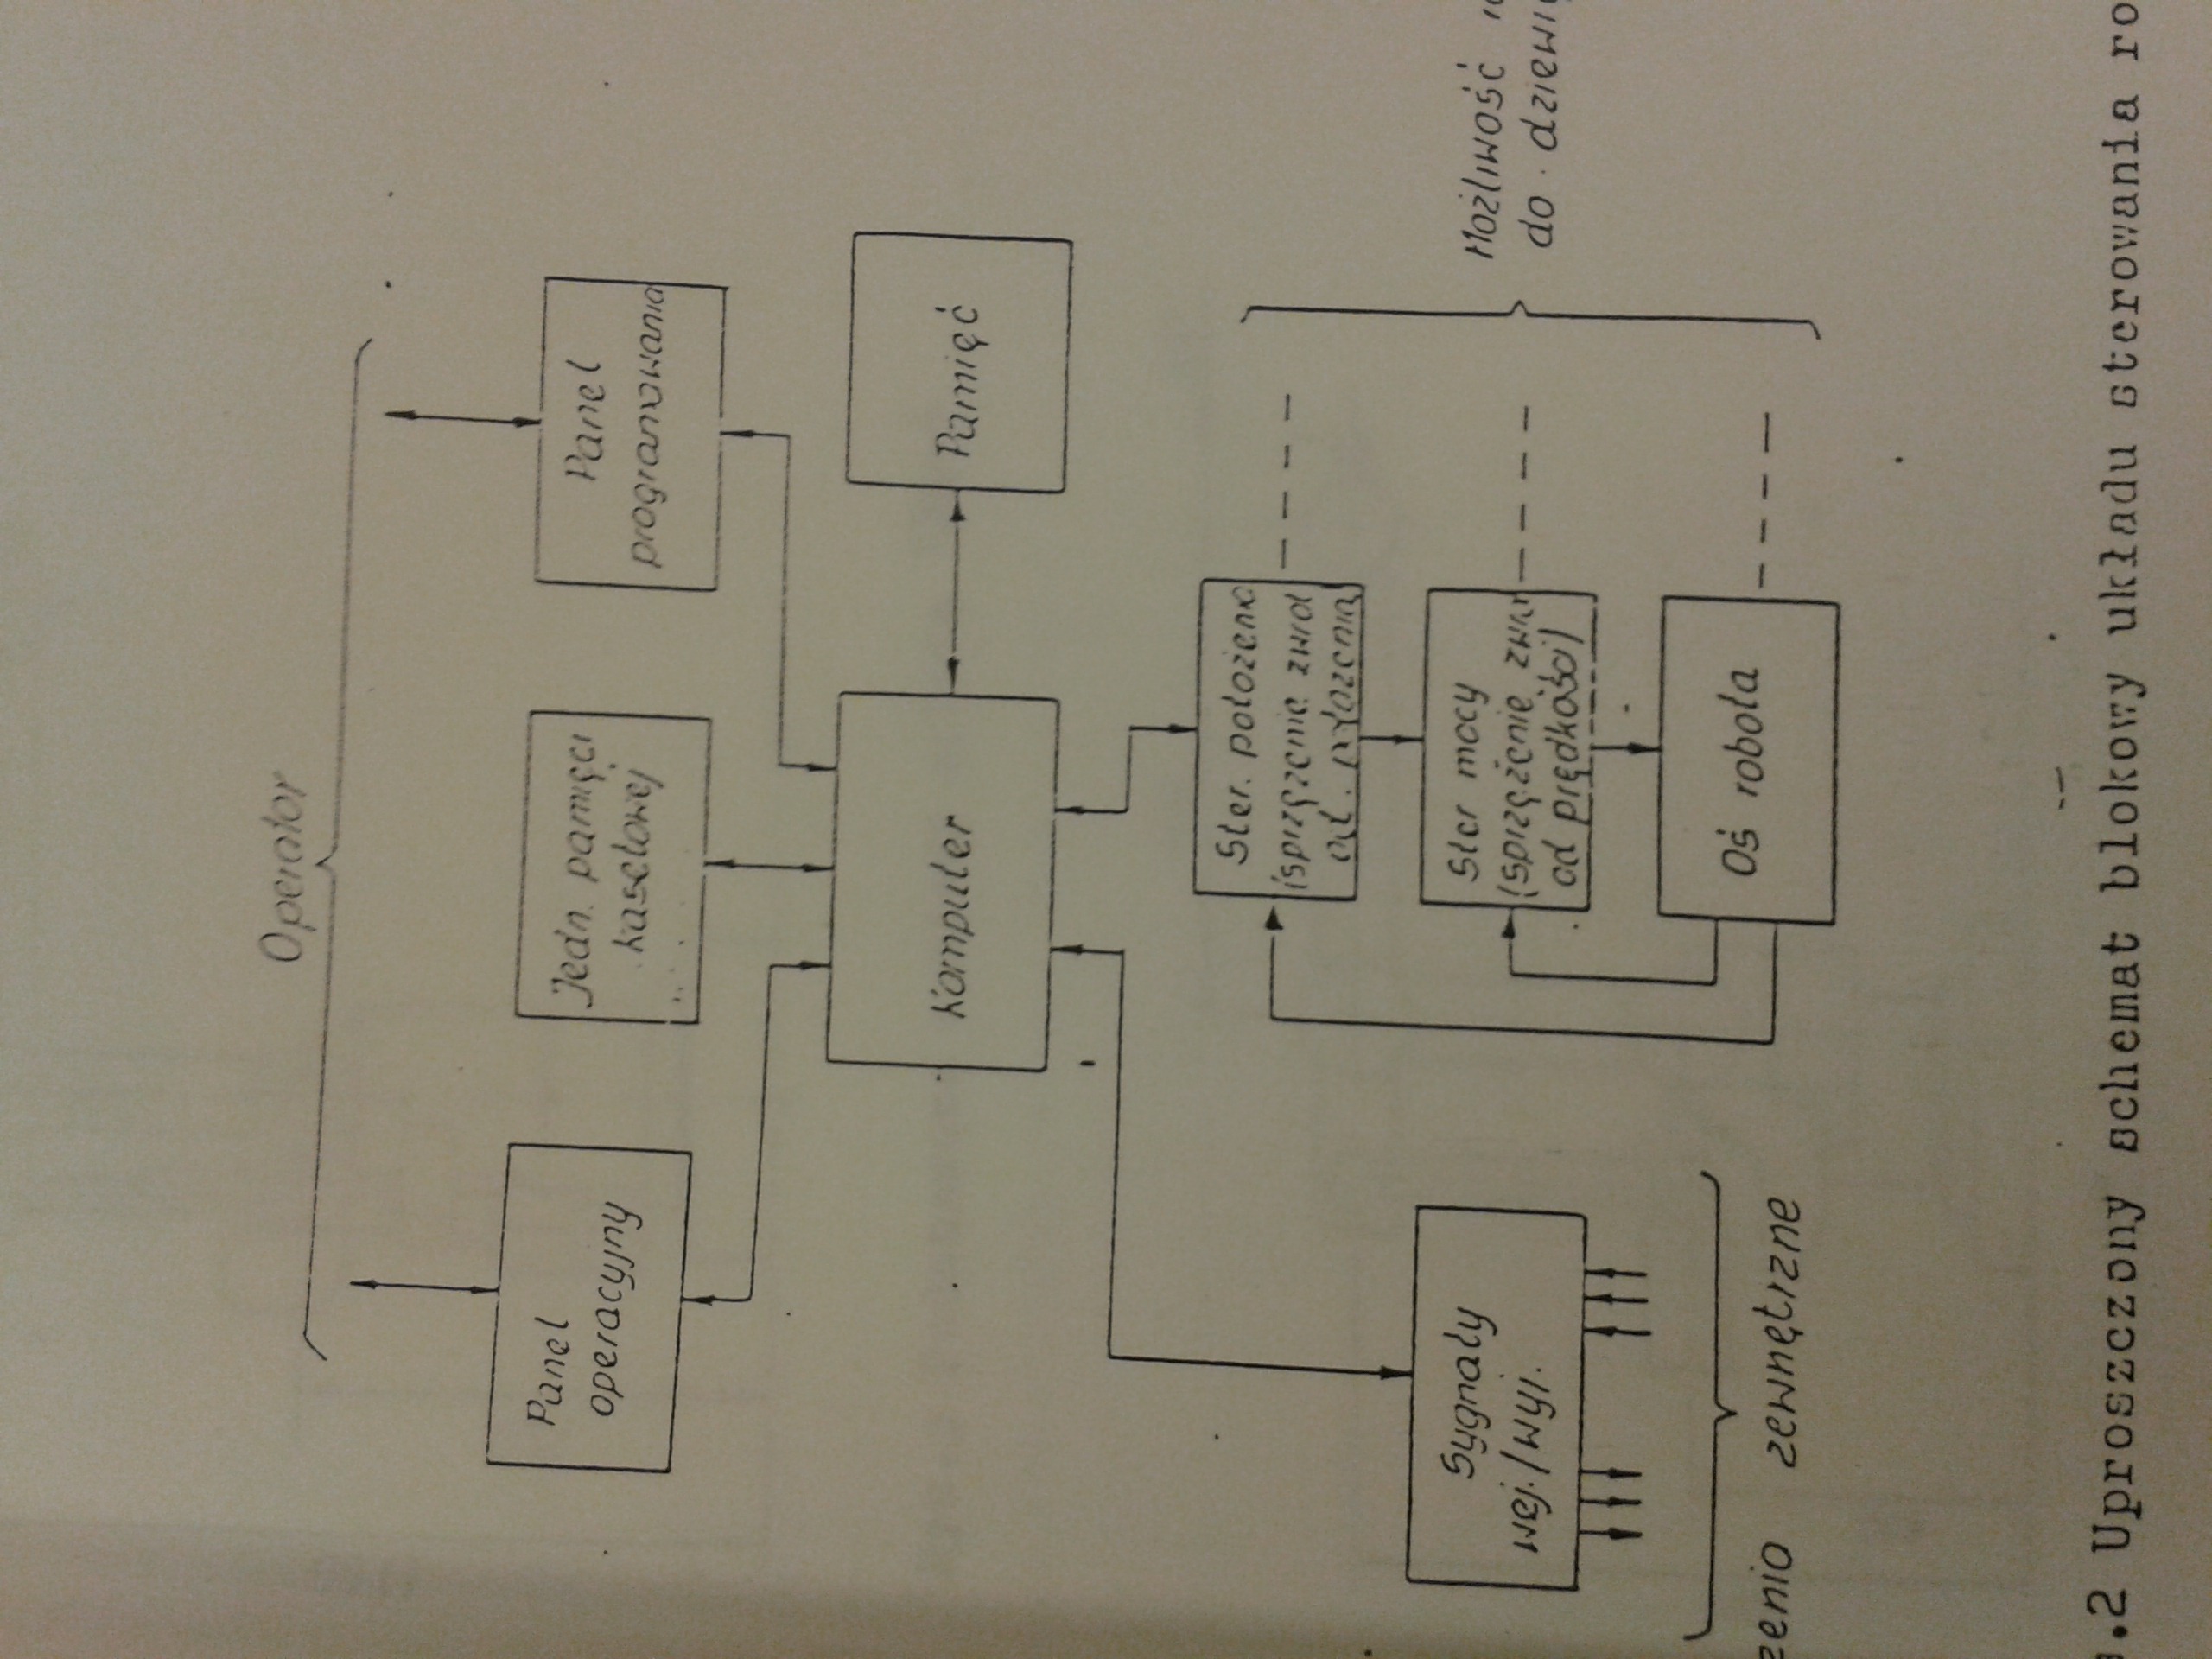 Operator
Panel
operacyjny
Jedn. pamięci
kasetowej
Panel
programowania
Komputer
Pamięć
Sygnały
wej./wyj.
Ster. położenia
(sprzężenie zwrot
od. położenia)
Ster mocy
(sprzężenie zwr.
od prędkości)
Oś robota
Możliwość
do dziewi
zenia zewnętrzne
.2 Uproszczony schemat blokowy układu sterowania ro